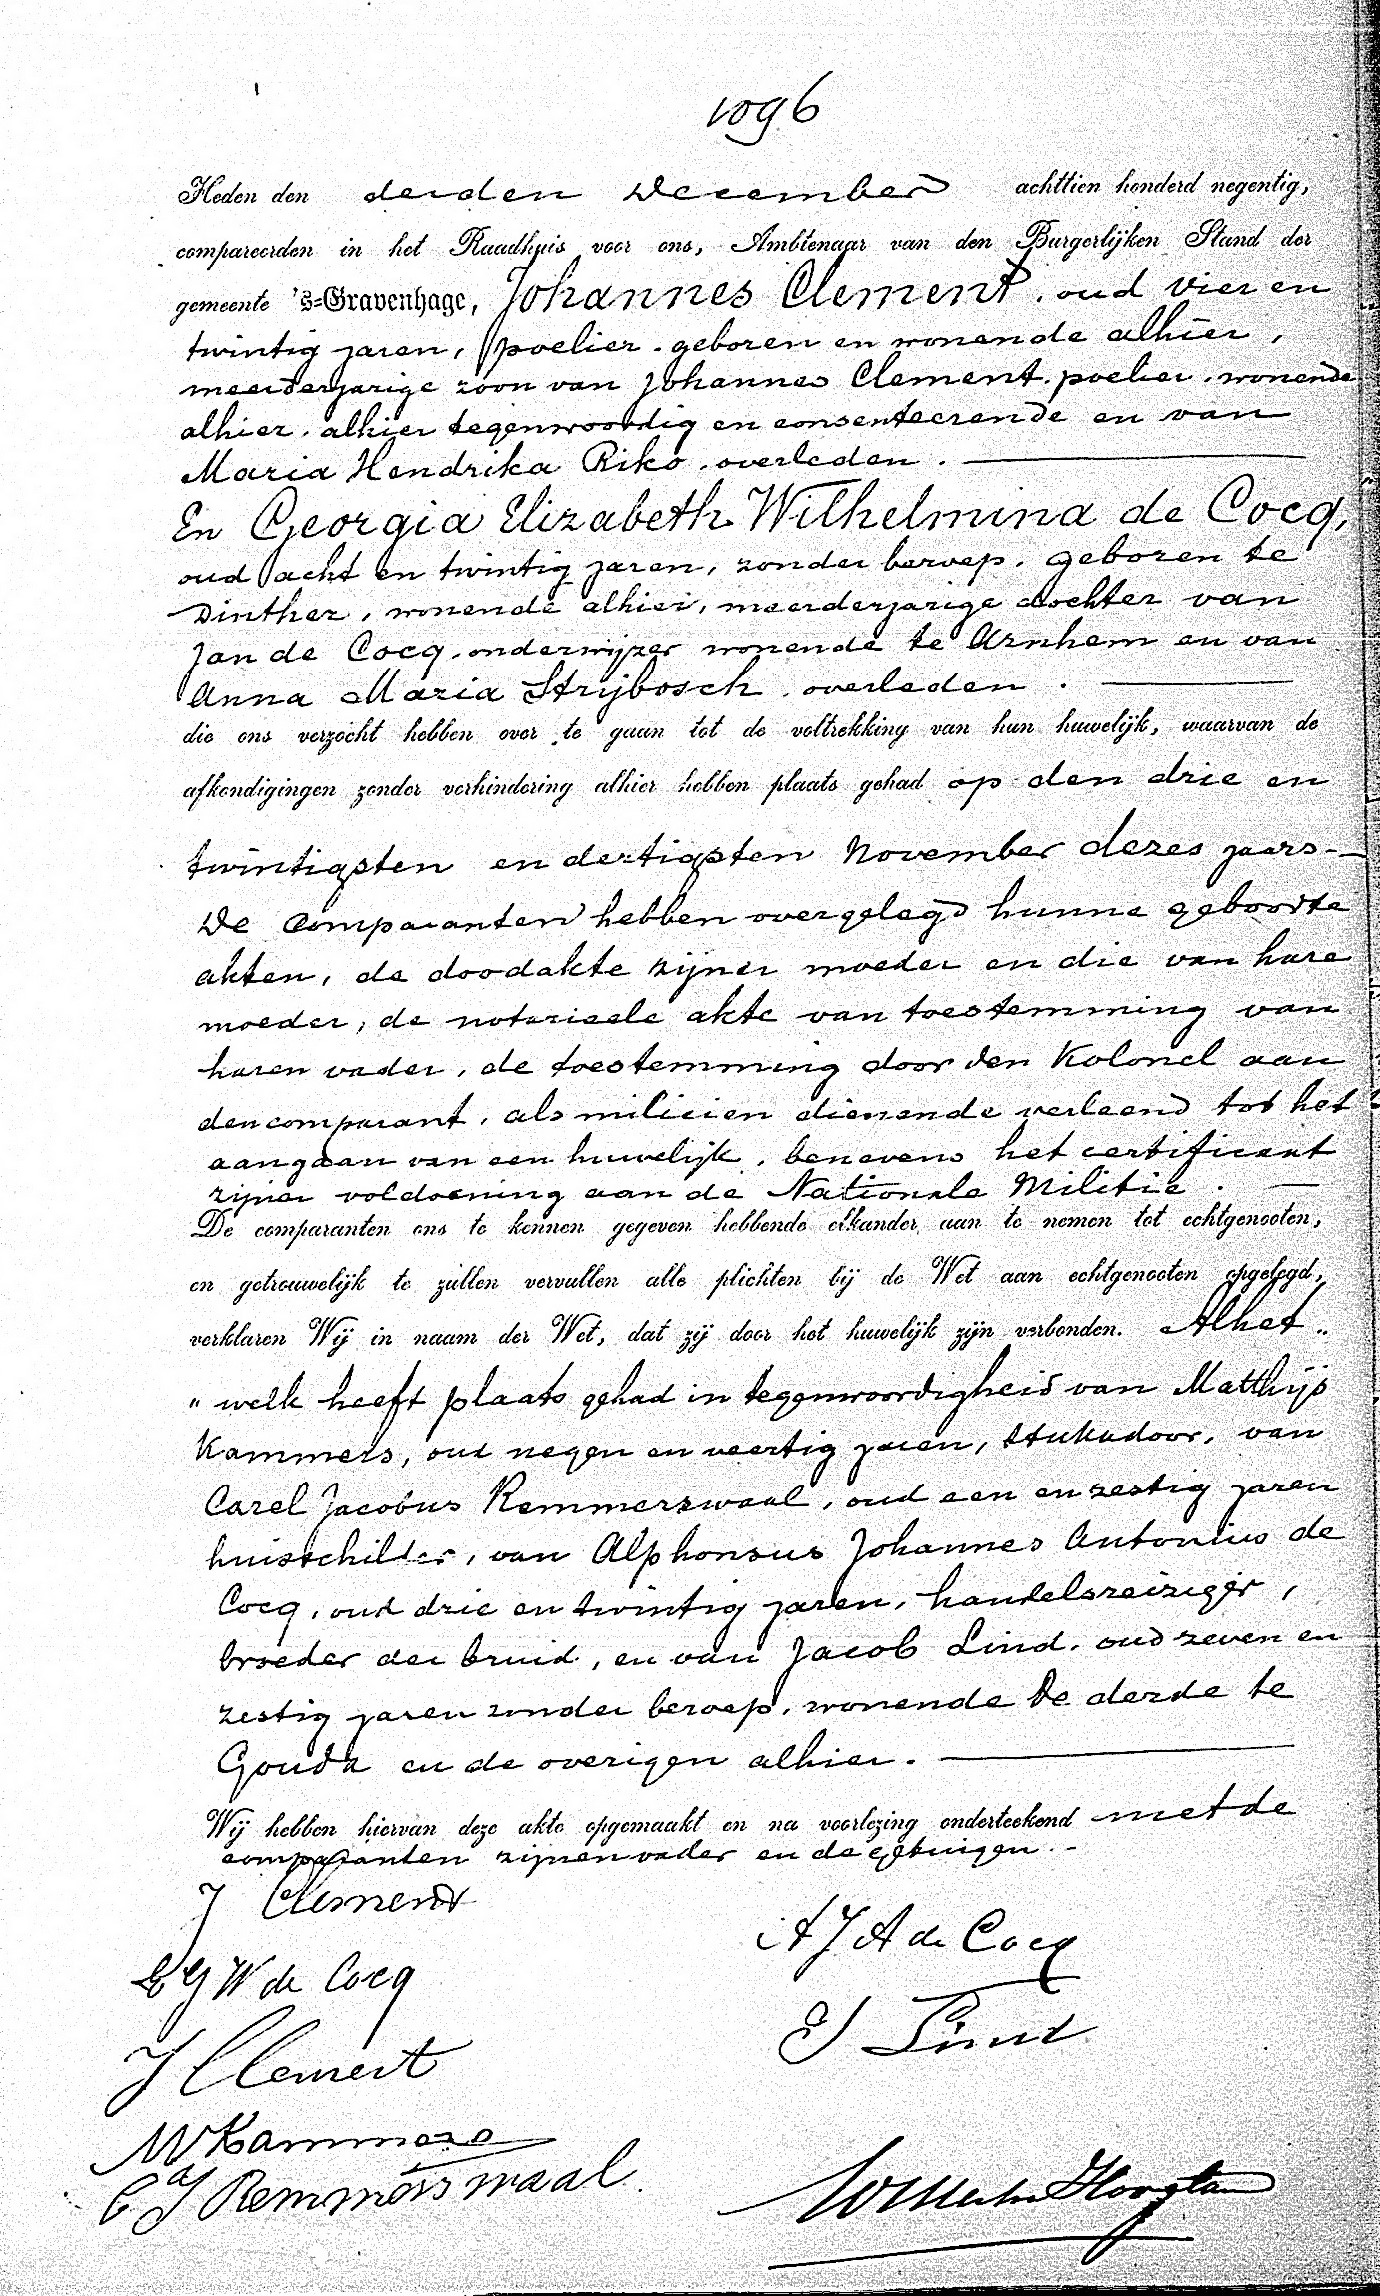 1096
Heden den derden December achttien honderd negentig,
compareerden in het Raadhuis voor ons, Ambtenaar van den Burgerlijken Stand der
gemeente 's-Gravenhage, Johannes Clement, oud vier en
twintig jaren, poelier, geboren en wonende alhier,
meerderjarige zoon van Johannes Clement, poelier, wonende
alhier, alhier tegenwoordig en consenteerende en van
Maria Hendrika Riko, overleden.
En Georgia Elizabeth Wilhelmina de Cocq,
oud acht en twintig jaren, zonder beroep, geboren te
Dinther, wonende alhier, meerderjarige dochter van
Jan de Cocq, onderwijzer wonende te Arnhem en van
Anna Maria Strijbosch, overleden.
die ons verzocht hebben over te gaan tot de voltrekking van hun huwelijk, waarvan de
afkondigingen zonder verhindering alhier hebben plaats gehad op den drie en
twintigsten en dertigsten November dezes jaars.
De comparanten hebben overgelegd hunne geboorte
akten, de doodakte zijner moeder en die van hare
moeder, de notarieele akte van toestemming van
haren vader, de toestemming door den Kolonel aan
den comparant, als milicien dienende verleend tot het
aangaan van een huwelijk, benevens het certificaat
zijner voldoening aan de Nationale Militie.
De comparanten ons te kennen gegeven hebbende elkander aan te nemen tot echtgenooten,
en getrouwelijk te zullen vervullen alle plichten bij de Wet aan echtgenooten opgelegd,
verklaren Wij in naam der Wet, dat zij door het huwelijk zijn verbonden. Alhet„
„welk heeft plaats gehad in tegenwoordigheid van Matthijs
Kammers, oud negen en veertig jaren, stukadoor, van
Carel Jacobus Remmerswaal, oud een en zestig jaren
huisschilder, van Alphonsus Johannes Antonius de
Cocq, oud drie en twintig jaren, handelsreiziger,
broeder der bruid, en van Jacob Lind, oud zeven en
zestig jaren zonder beroep, wonende de derde te
Gouda en de overigen alhier.
Wij hebben hiervan deze akte opgemaakt en na voorlezing onderteekend met de
comparanten zijnen vader en de getuigen.
J Clement
A J A de Cocq
E G W de Cocq
J Lind
J Clement
M Kammers
C J Remmerswaal